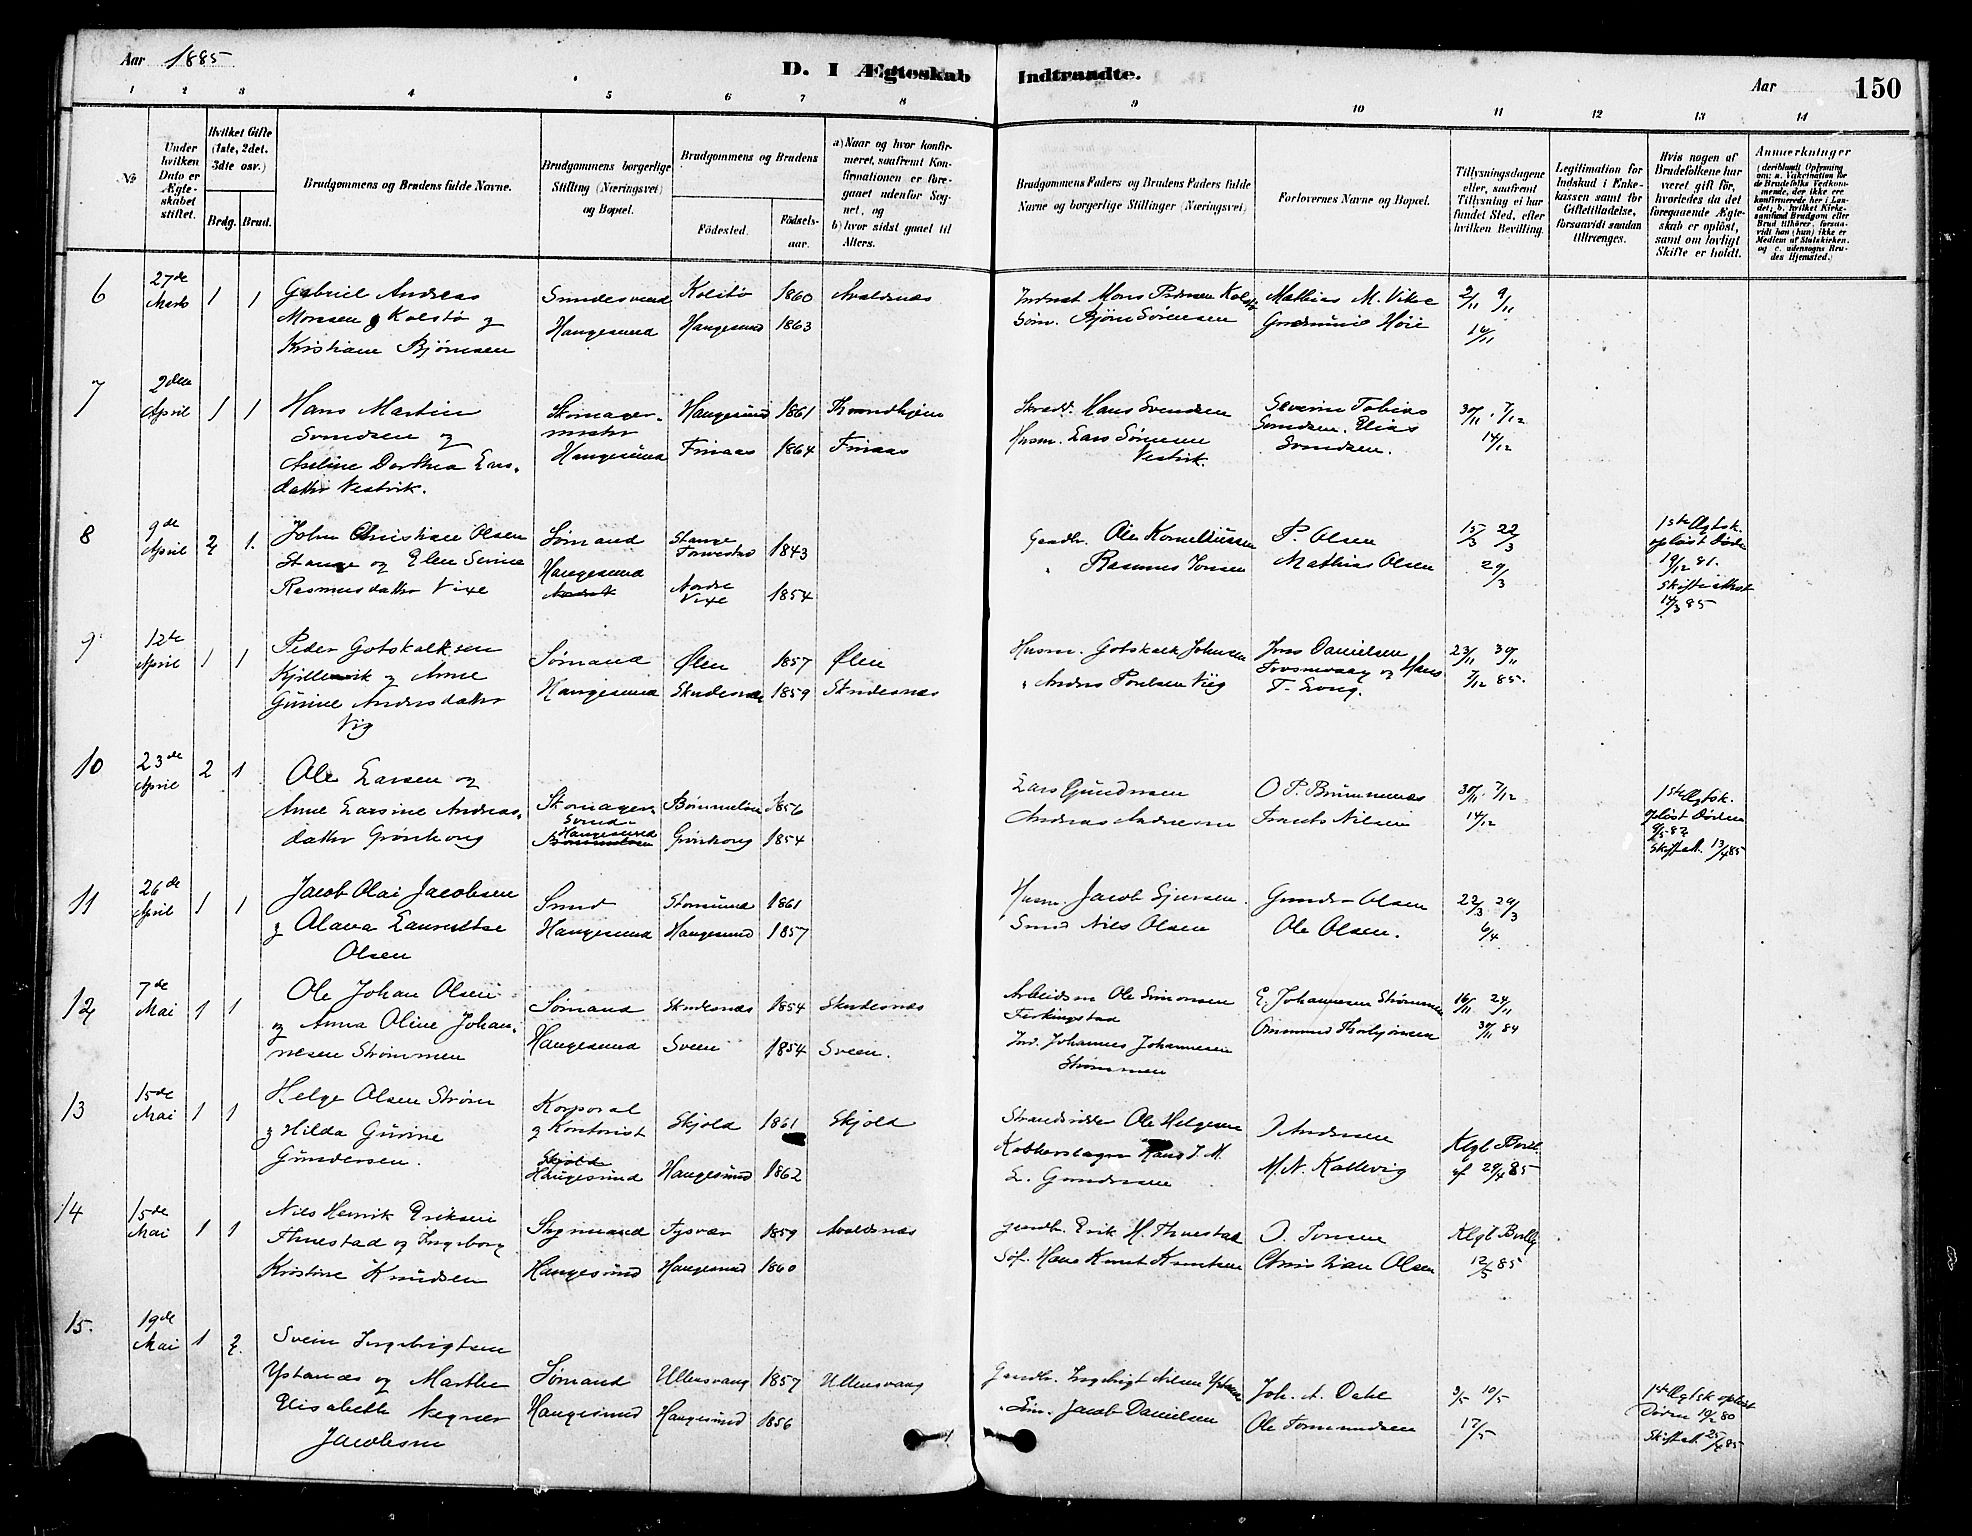 Aar 1885
D. I Ægteskab Indtraadte.
Aar
150
1 2 3 4 5 6 7 8 9 10 11 12 13 14
No
Under hvilken Dato er Ægteskabet stiftet.
Hvilket Gifte (1ste, 2det, 3dte osv.)
Brdg. Brud.
Brudgommens og Brudens fulde Navne.
Brudgommens borgerlige Stilling (Næringsvei) og Bopæl.
Brudgommens og Brudens
Fødested.
Fødselsaar.
a) Naar og hvor konfirmeret, saafremt Konfirmationen er foregaaet udenfor Sognet, og
b) hvor sidst gaaet til Alters.
Brudgommens Faders og Brudens Faders fulde Navne og borgerlige Stillinger (Næringsvei)
Forlovernes Navne og Bopæl.
Tillysningsdagene eller, saafremt Tillysning ei har fundet Sted, efter hvilken Bevilling.
Legitimation for Indskud i Enkekassen samt for Giftetilladelse, forsaavidt saadan tiltrænges.
Hvis nogen af Brudefolkene har været gift før, hvorledes da det foregaaende Ægteskab er opløst, samt om lovligt Skifte er holdt.
Anmærkninger
6 27de Marts 1 1
Gabriel Andreas
Monsen Kolstø og
Kristiane Bjørnsen
Haugesund
Kolstø 1860 Avaldsnæs
Haugesund 1863
Søm. Bjørn Sørensen
Mathias M. Vikse
2/11 9/11
16/11
7 2den April 1 1
Hans Martin
Svendsen og
Arline Dorthea Lars-
datter Vestvik.
Skomager-
mester
Haugesund
Haugesund 1861 Throndhjem
Finaas 1864 Finaas
Skrædd. Hans Svendsen
Husm. Lars Sørensen
Vestvik.
Severin Tobias
Svendsen. Elias
Svendsen.
30/11 7/12
14/12
8 9de April 2 1.
John Christian Olsen
Stange og Elen Serine
Rasmusdatter Vixe
Sømand
Haugesund
Stange
Torvestad 1843
Nordre
Vixe 1854
Gaardbr. Ole Korneliussen
" Rasmus Jonsen
P. Olsen
Mathias Olsen
15/3 22/3
29/3
1ste Ægtsk.
opløst Døden
19/12 81.
Skifteattest
14/3 85
9 12te April 1 1
Peder Gotskalksen
Kjillesvik og Anne
Gurine Andersdatter
Vig
Sømand
Haugesund
Ølen 1857 Ølen
Skudesnæs 1859 Skudesnæs
Husm. Gotskalk Johnsen
" Anders Poulsen Viig
Jens Danielsen
23/11 30/11
7/12 85.
10 23de April 2 1
Ole Larsen og
Anne Larsine Andreas-
datter Grønhoug
Skomager-
Svend
Haugesund
Bømmeløen 1856
Grønhoug 1854
Lars Gundersen
Andreas Andreassen
O P. Brummenæs
Frants Nilsen
30/11 7/12
14/12
1ste Ægtsk.
Opløst Døden
Skifteatt. 13/4 85
11 26de April 1 1
Jacob Olai Jacobsen
g Olava Lauretse
Olsen
Smed
Haugesund
Storesund 1861
Haugesund 1857
Husm. Jacob Sjursen
Smed Nils Olsen
Gunder Olsen
Ole Olsen.
22/3 29/3
6/4
12 7de Mai 1 1
Ole Johan Olsen
og Anna Oline Johan-
nesen Strømmen
Sømand
Haugesund
Skudesnæs 1854 Skudesnæs
Sveen 1854 Sveen.
Arbeidsm Ole Simonsen
Ferkingstad
Ind. Johannes Johannesen
Strømmen
E. Johannesen Strømmen
Ommund Thorbjørnsen
16/11 24/11
30/11 84
13 15de Mai 1 1
Helge Olsen Strøm
g Hilda Gurine
Gundersen.
Korporal
g Kontorist
Haugesund
Skjold 1861 Skjold
Haugesund 1862
Strandsidder Ole Helgesen
Kobberslager Hans J. M.
L. Gundersen
O Andersen
M. N. Kallevig
Klgl Bevil.
af 29/4 85
14 15de Mai 1 1
Nils Henrik Eriksen
Thuestad og Ingeborg
Kristine Knudsen
Styrmand
Haugesund
Tysvær 1859 Avaldsnæs
Haugesund 1860
gaardbr. Erik H. Thuestad
Søf. Hans Knut Knutsen
O. Jonsen
Christian Olsen
Klgl Bevllg
12/5 85
15. 19de Mai 1 2.
Svein Ingebrigtsen
Ystanæs og Marthe
Elisabeth Wegner
Jacobsen
Sømand
Haugesund
Ullensvang 1857 Ullensvang
Haugesund 1856
Gaardbr. Ingebrigt Nilsen Ystanæs
Jacob Danielsen
Joh. A. Dahl
Ole Tormundsen
3/5 10/5
17/5
1ste Ægtsk opløst
Døden 19/2 80
Skifteatt. 25/4 85